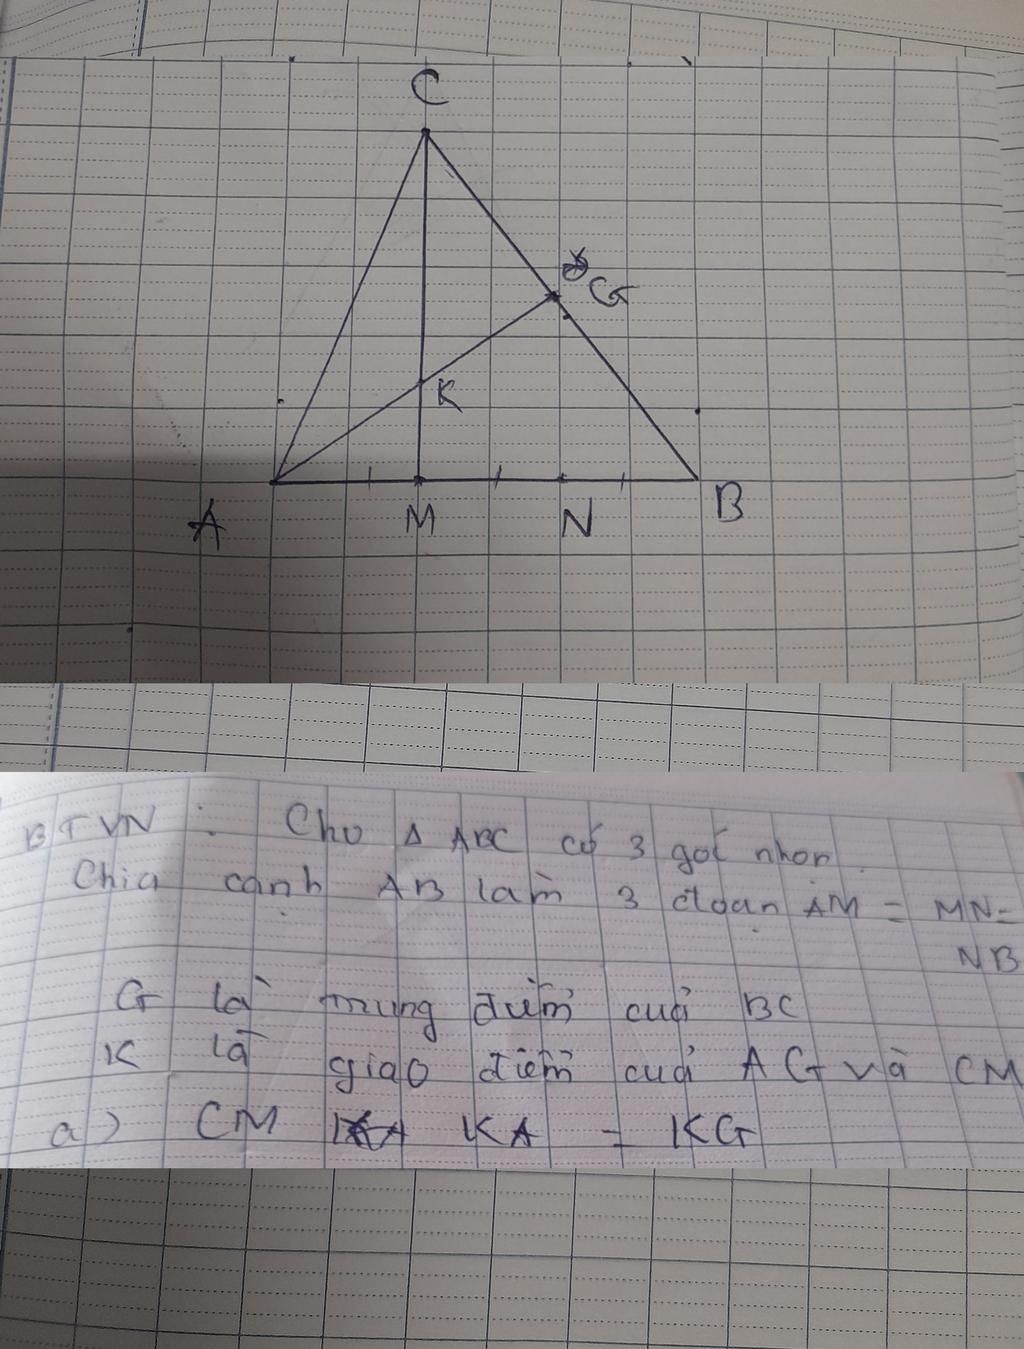 C
G
K
A
M
N
B
BTVN : Cho Δ ABC có 3 góc nhọn
Chia cạnh AB làm 3 đoạn AM = MN =
NB
G là trung điểm của BC
K là giao điểm của AG và CM
a) CM KA = KG